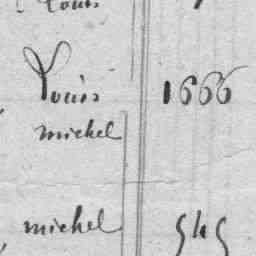 Louis
Louis 1666
michel
michel 545